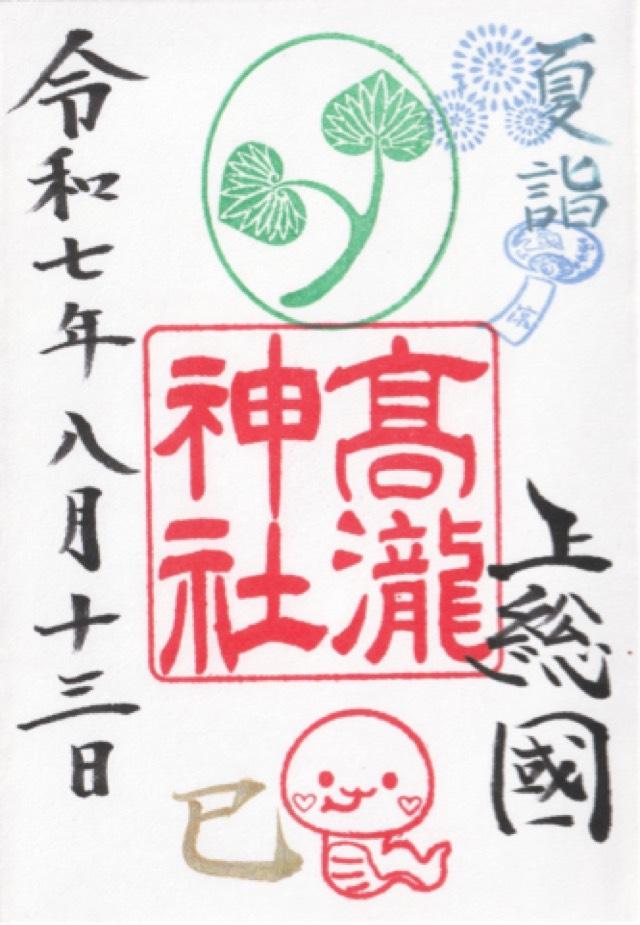 夏詣
涼
上総國
髙瀧
神社
巳
令和七年八月十三日